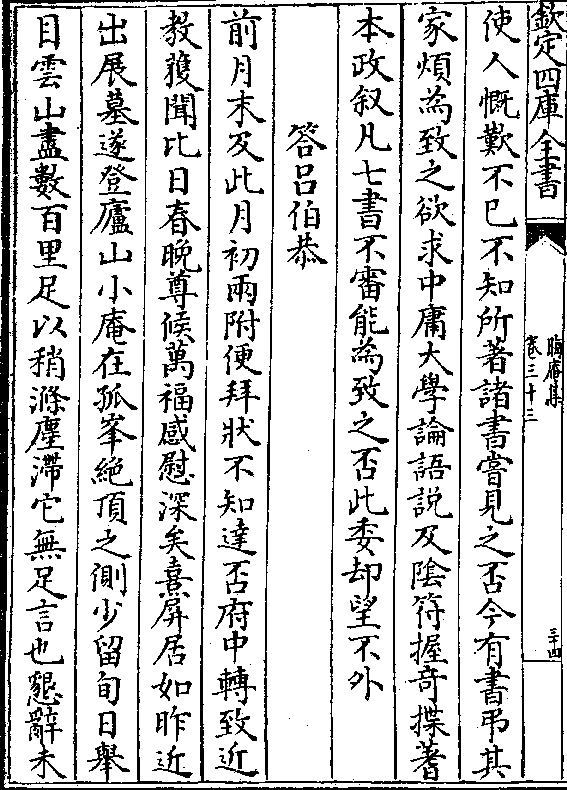 欽定四庫全書
晦庵集
卷三十三
三十四
使人慨歎不已不知所著諸書嘗見之否今有書弔其
家煩為致之欲求中庸大學論語說及陰符握奇揲蓍
本政叙凡七書不審能為致之否此委却望不外
答呂伯恭
前月末及此月初兩附便拜狀不知達否府中轉致近
教獲聞比日春晚尊候萬福感慰深矣熹屏居如昨近
出展墓遂登廬山小庵在孤峯絶頂之側少留旬日舉
目雲山盡數百里足以稍滌塵滯它無足言也懇辭未